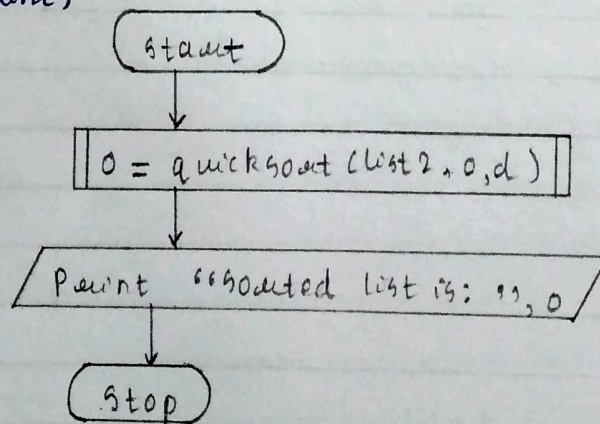 start
0 = quicksort (list2, 0, d)
Print “sorted list is: ”, 0
Stop